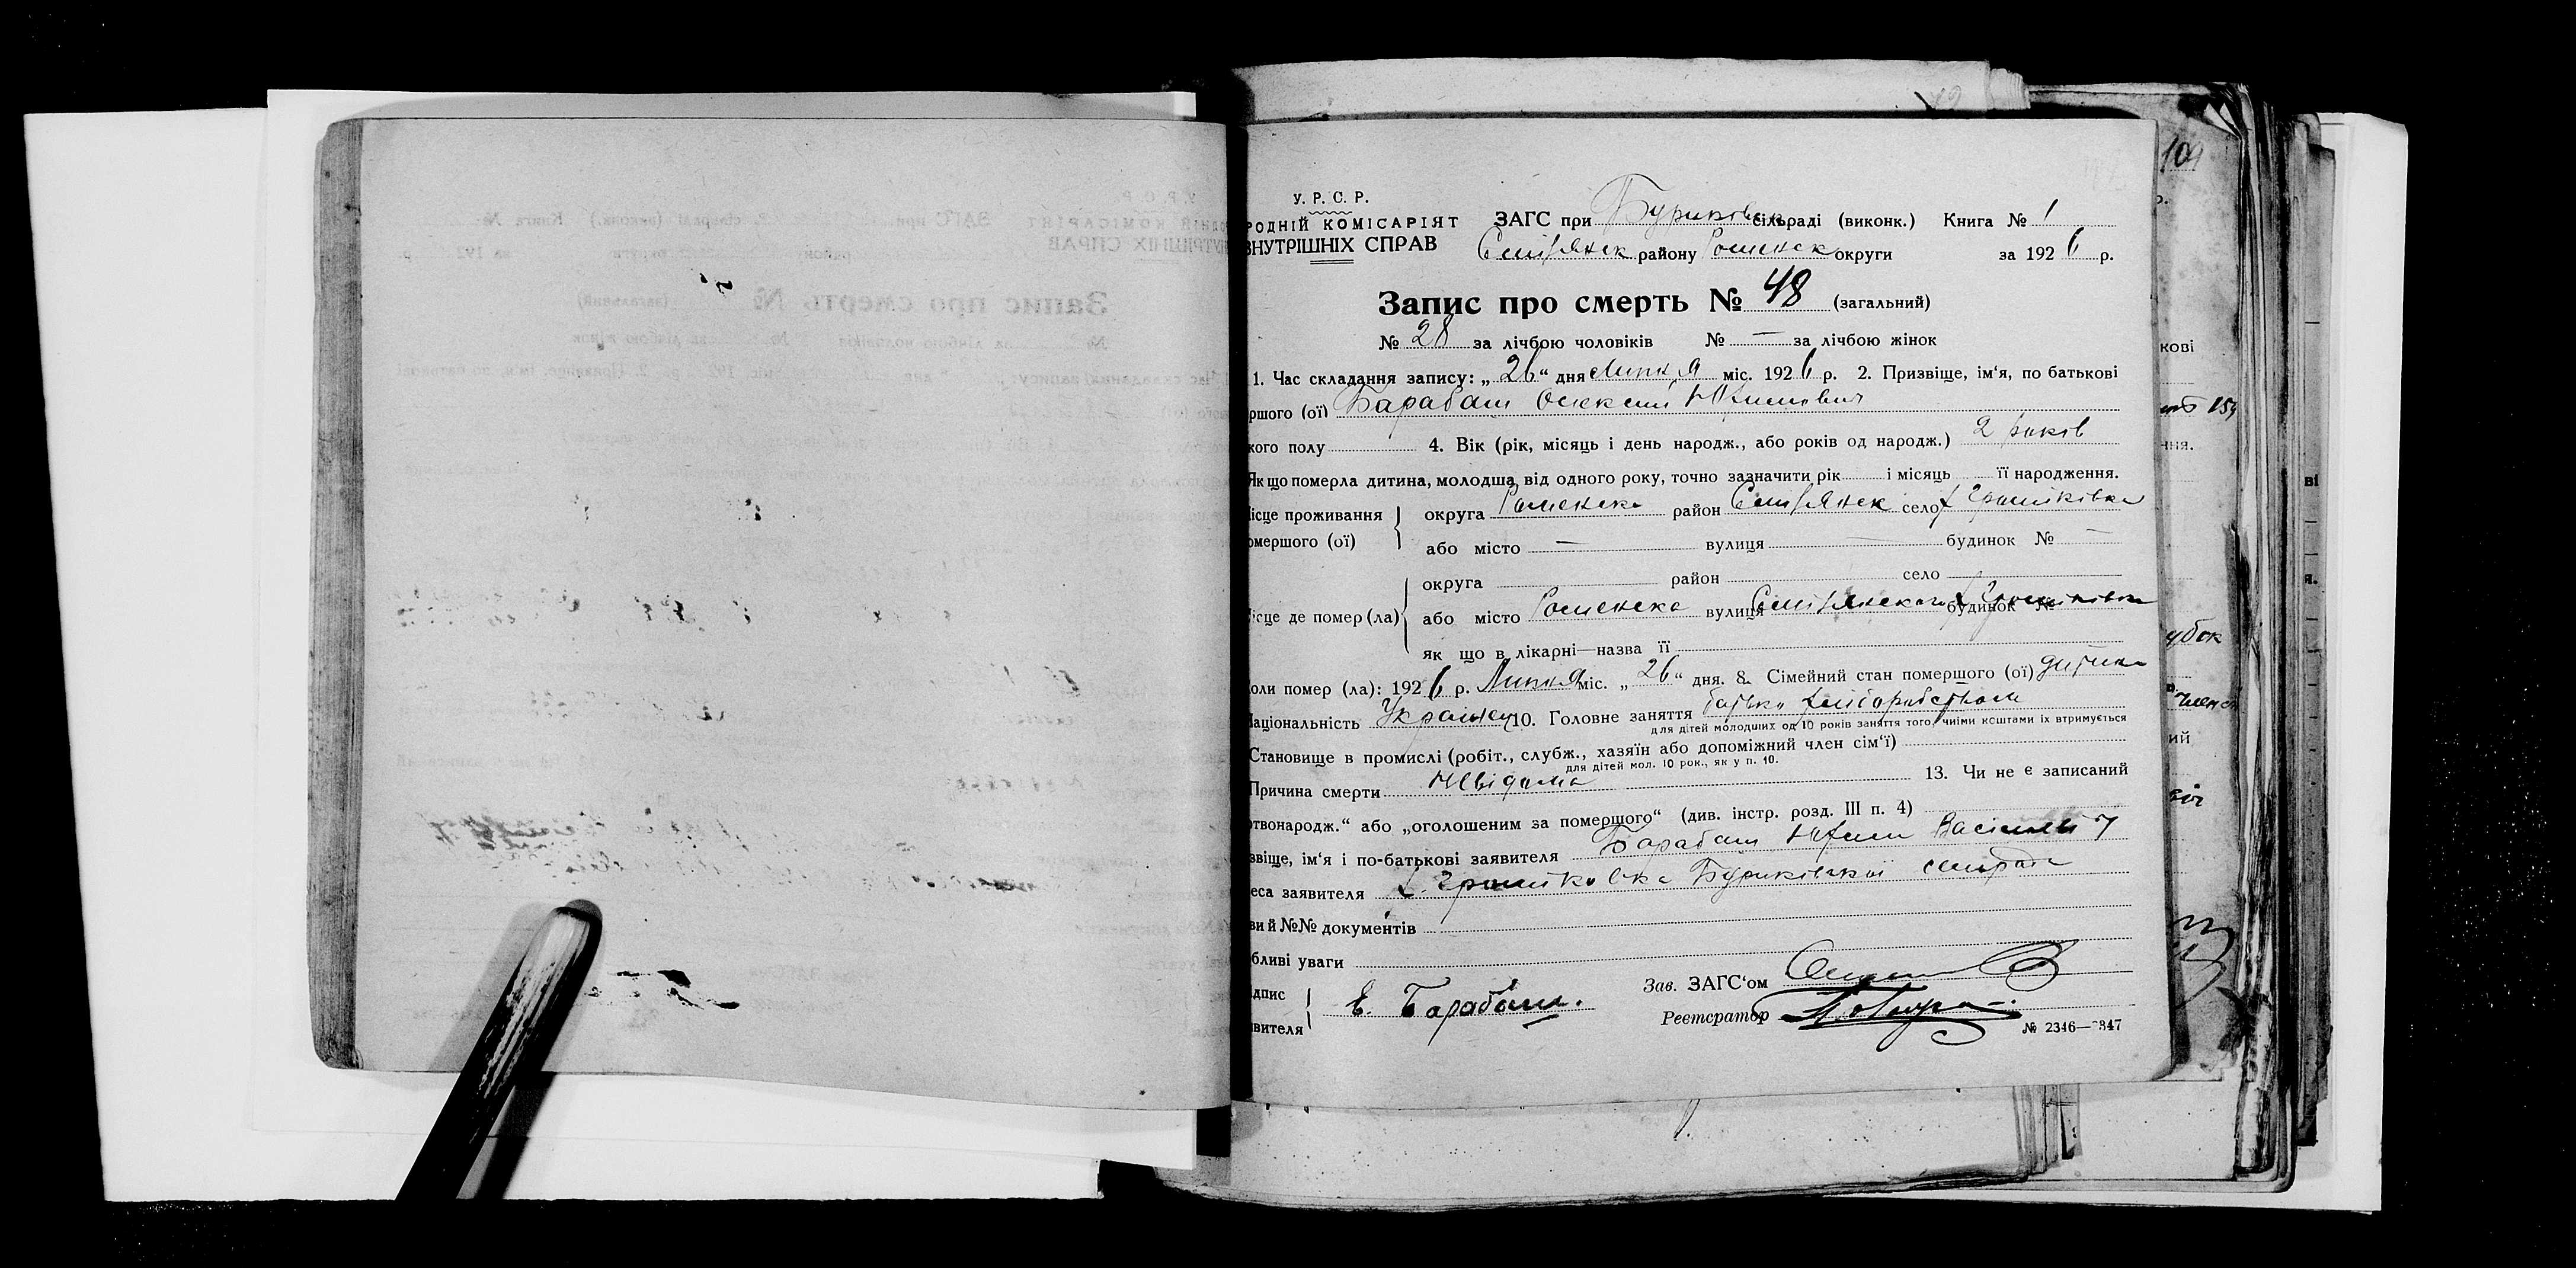 У. Р. С. Р.
РОДНІЙ КОМІСАРІЯТ ЗАГС при Буриківськ сільраді (виконк.) Книга № 1
ВНУТРІШНІХ СПРАВ району Роменск округи за 1926 р.
Запис про смерть № 48 (загальний)
№ 28 за лічбою чоловіків № — за лічбою жінок
1. Час складання запису: „26“ дня Липня міс. 1926 р. 2. Призвіще, ім'я, по батькові
ршого (ої) Барабаш Олексій Юхимович
кого полу 4. Вік (рік, місяць і день народж., або років од народж.) 2 років
Якщо померла дитина, молодша від одного року, точно зазначити рік і місяць її народження.
ісце проживання округа Роменска район село
омершого (ої) або місто — вулиця — будинок № —
округа район село
ісце де помер (ла) або місто Роменска вулиця будинок №
як що в лікарні—назва її
оли помер (ла): 1926 р. Липня міс. „26“ дня. 8. Сімейний стан помершого (ої) дитина
аціональність 10. Головне заняття батько хліборобством
для дітей молодших од 10 років заняття того, чиїми коштами їх втримується
Становище в промислі (робіт., служб., хазяїн або допоміжний член сім'ї)
для дітей мол. 10 рок., як у п. 10.
Причина смерти Невідома 13. Чи не є записаний
ртвонародж.“ або „оголошеним за помершого“ (див. інстр. розд. III п. 4)
звіще, ім'я і по-батькові заявителя Барабаш Юхим
еса заявителя Буриківської сільради
ви й №№ документів
бливі уваги
дпис Е. Барабаш. Зав. ЗАГС'ом
явителя Реєтсратор
№ 2346—2347
104
кові
ння.